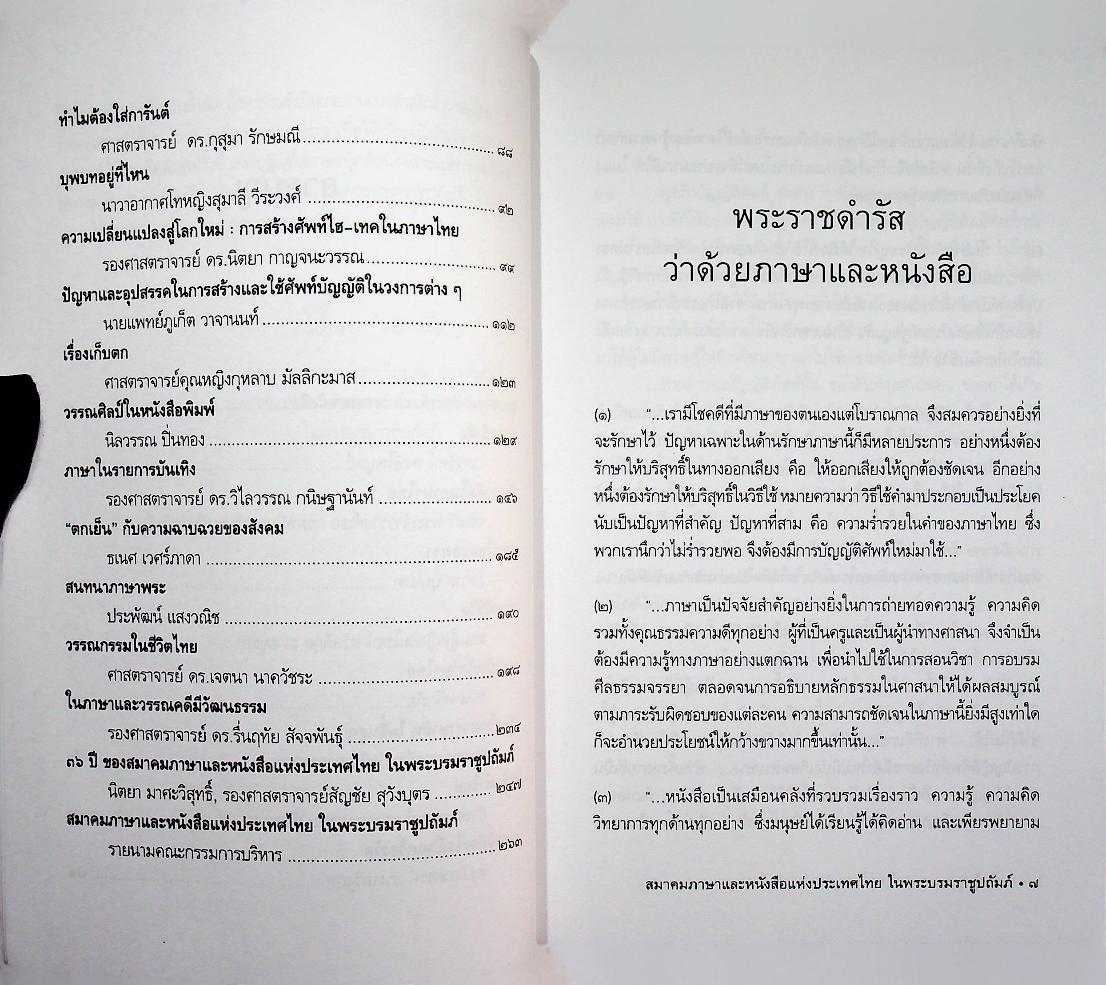 ทำไมต้องใส่การันต์
ศาสตราจารย์ ดร.กุสุมา รักษมณี ๘๘
บุพบทอยู่ที่ไหน
นาวาอากาศโทหญิงสุมาลี วีระวงศ์ ๙๒
ความเปลี่ยนแปลงสู่โลกใหม่ : การสร้างศัพท์ไฮ-เทคในภาษาไทย
รองศาสตราจารย์ ดร.นิตยา กาญจนะวรรณ ๙๙
ปัญหาและอุปสรรคในการสร้างและใช้ศัพท์บัญญัติในวงการต่าง ๆ
นายแพทย์ภูเก็ต วาจานนท์ ๑๑๒
เรื่องเก็บตก
ศาสตราจารย์คุณหญิงกุหลาบ มัลลิกะมาส ๑๒๓
วรรณศิลป์ในหนังสือพิมพ์
นิลวรรณ ปิ่นทอง ๑๒๙
ภาษาในรายการบันเทิง
รองศาสตราจารย์ ดร.วิไลวรรณ กนิษฐานันท์ ๑๔๖
“ตกเย็น” กับความฉาบฉวยของสังคม
ธเนศ เวศร์ภาดา ๑๘๕
สนทนาภาษาพระ
ประพัฒน์ แสงวณิช ๑๙๐
วรรณกรรมในชีวิตไทย
ศาสตราจารย์ ดร.เจตนา นาควัชระ ๑๙๘
ในภาษาและวรรณคดีมีวัฒนธรรม
รองศาสตราจารย์ ดร.รื่นฤทัย สัจจพันธุ์ ๒๓๔
๓๖ ปี ของสมาคมภาษาและหนังสือแห่งประเทศไทย ในพระบรมราชูปถัมภ์
นิตยา มาศะวิสุทธิ์, รองศาสตราจารย์สัญชัย สุวังบุตร ๒๔๗
สมาคมภาษาและหนังสือแห่งประเทศไทย ในพระบรมราชูปถัมภ์
รายนามคณะกรรมการบริหาร ๒๖๓
พระราชดำรัส
ว่าด้วยภาษาและหนังสือ
(๑) “...เรามีโชคดีที่มีภาษาของตนเองแต่โบราณกาล จึงสมควรอย่างยิ่งที่
จะรักษาไว้ ปัญหาเฉพาะในด้านรักษาภาษานี้ก็มีหลายประการ อย่างหนึ่งต้อง
รักษาให้บริสุทธิ์ในทางออกเสียง คือ ให้ออกเสียงให้ถูกต้องชัดเจน อีกอย่าง
หนึ่งต้องรักษาให้บริสุทธิ์ในวิธีใช้ หมายความว่า วิธีใช้คำมาประกอบเป็นประโยค
นับเป็นปัญหาที่สำคัญ ปัญหาที่สาม คือ ความร่ำรวยในคำของภาษาไทย ซึ่ง
พวกเรานึกว่าไม่ร่ำรวยพอ จึงต้องมีการบัญญัติศัพท์ใหม่มาใช้...”
(๒) “...ภาษาเป็นปัจจัยสำคัญอย่างยิ่งในการถ่ายทอดความรู้ ความคิด
รวมทั้งคุณธรรมความดีทุกอย่าง ผู้ที่เป็นครูและเป็นผู้นำทางศาสนา จึงจำเป็น
ต้องมีความรู้ทางภาษาอย่างแตกฉาน เพื่อนำไปใช้ในการสอนวิชา การอบรม
ศีลธรรมจรรยา ตลอดจนการอธิบายหลักธรรมในศาสนาให้ได้ผลสมบูรณ์
ตามภาระรับผิดชอบของแต่ละคน ความสามารถชัดเจนในภาษานี้ยิ่งมีสูงเท่าใด
ก็จะอำนวยประโยชน์ให้กว้างขวางมากขึ้นเท่านั้น...”
(๓) “...หนังสือเป็นเสมือนคลังที่รวบรวมเรื่องราว ความรู้ ความคิด
วิทยาการทุกด้านทุกอย่าง ซึ่งมนุษย์ได้เรียนรู้ได้คิดอ่าน และเพียรพยายาม
สมาคมภาษาและหนังสือแห่งประเทศไทย ในพระบรมราชูปถัมภ์ • ๗